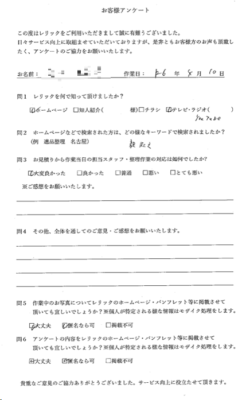 お客様アンケート
この度はレリックをご利用いただきまして誠に有難うございました。
日々サービス向上に取組ませていただいておりますが、是非ともお客様方のお声も頂戴し
たく、アンケートのご協力をお願いいたします。
お名前: 作業日: R6 年 8 月 10 日
問1 レリックを何で知って頂けましたか?
☑ホームページ □知人紹介( 様)□チラシ ☑テレビ・ラジオ( )
問2 ホームページなどで検索された方は、どの様なキーワードで検索されましたか?
(例 遺品整理 名古屋)
問3 お見積りから作業当日の担当スタッフ・整理作業の対応は如何でしたか?
☑大変良かった □良かった □普通 □悪い □とても悪い
※ご感想をお願いいたします。
問4 その他、全体を通してのご意見・ご感想をお願いします。
問5 作業中のお写真についてレリックのホームページ・パンフレット等に掲載させて
頂いても宜しいでしょうか?※個人が特定される様な情報はモザイク処理をします。
☑大丈夫 ☑匿名なら可 □掲載不可
問6 アンケートの内容をレリックのホームページ・パンフレット等に掲載させて
頂いても宜しいでしょうか?※個人が特定される様な情報はモザイク処理をします。
☑大丈夫 ☑匿名なら可 □掲載不可
貴重なご意見のご協力ありがとうございました。サービス向上に役立たせて頂きます。